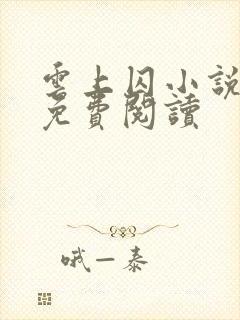 雲上囚小說
免費閱讀
哦一泰